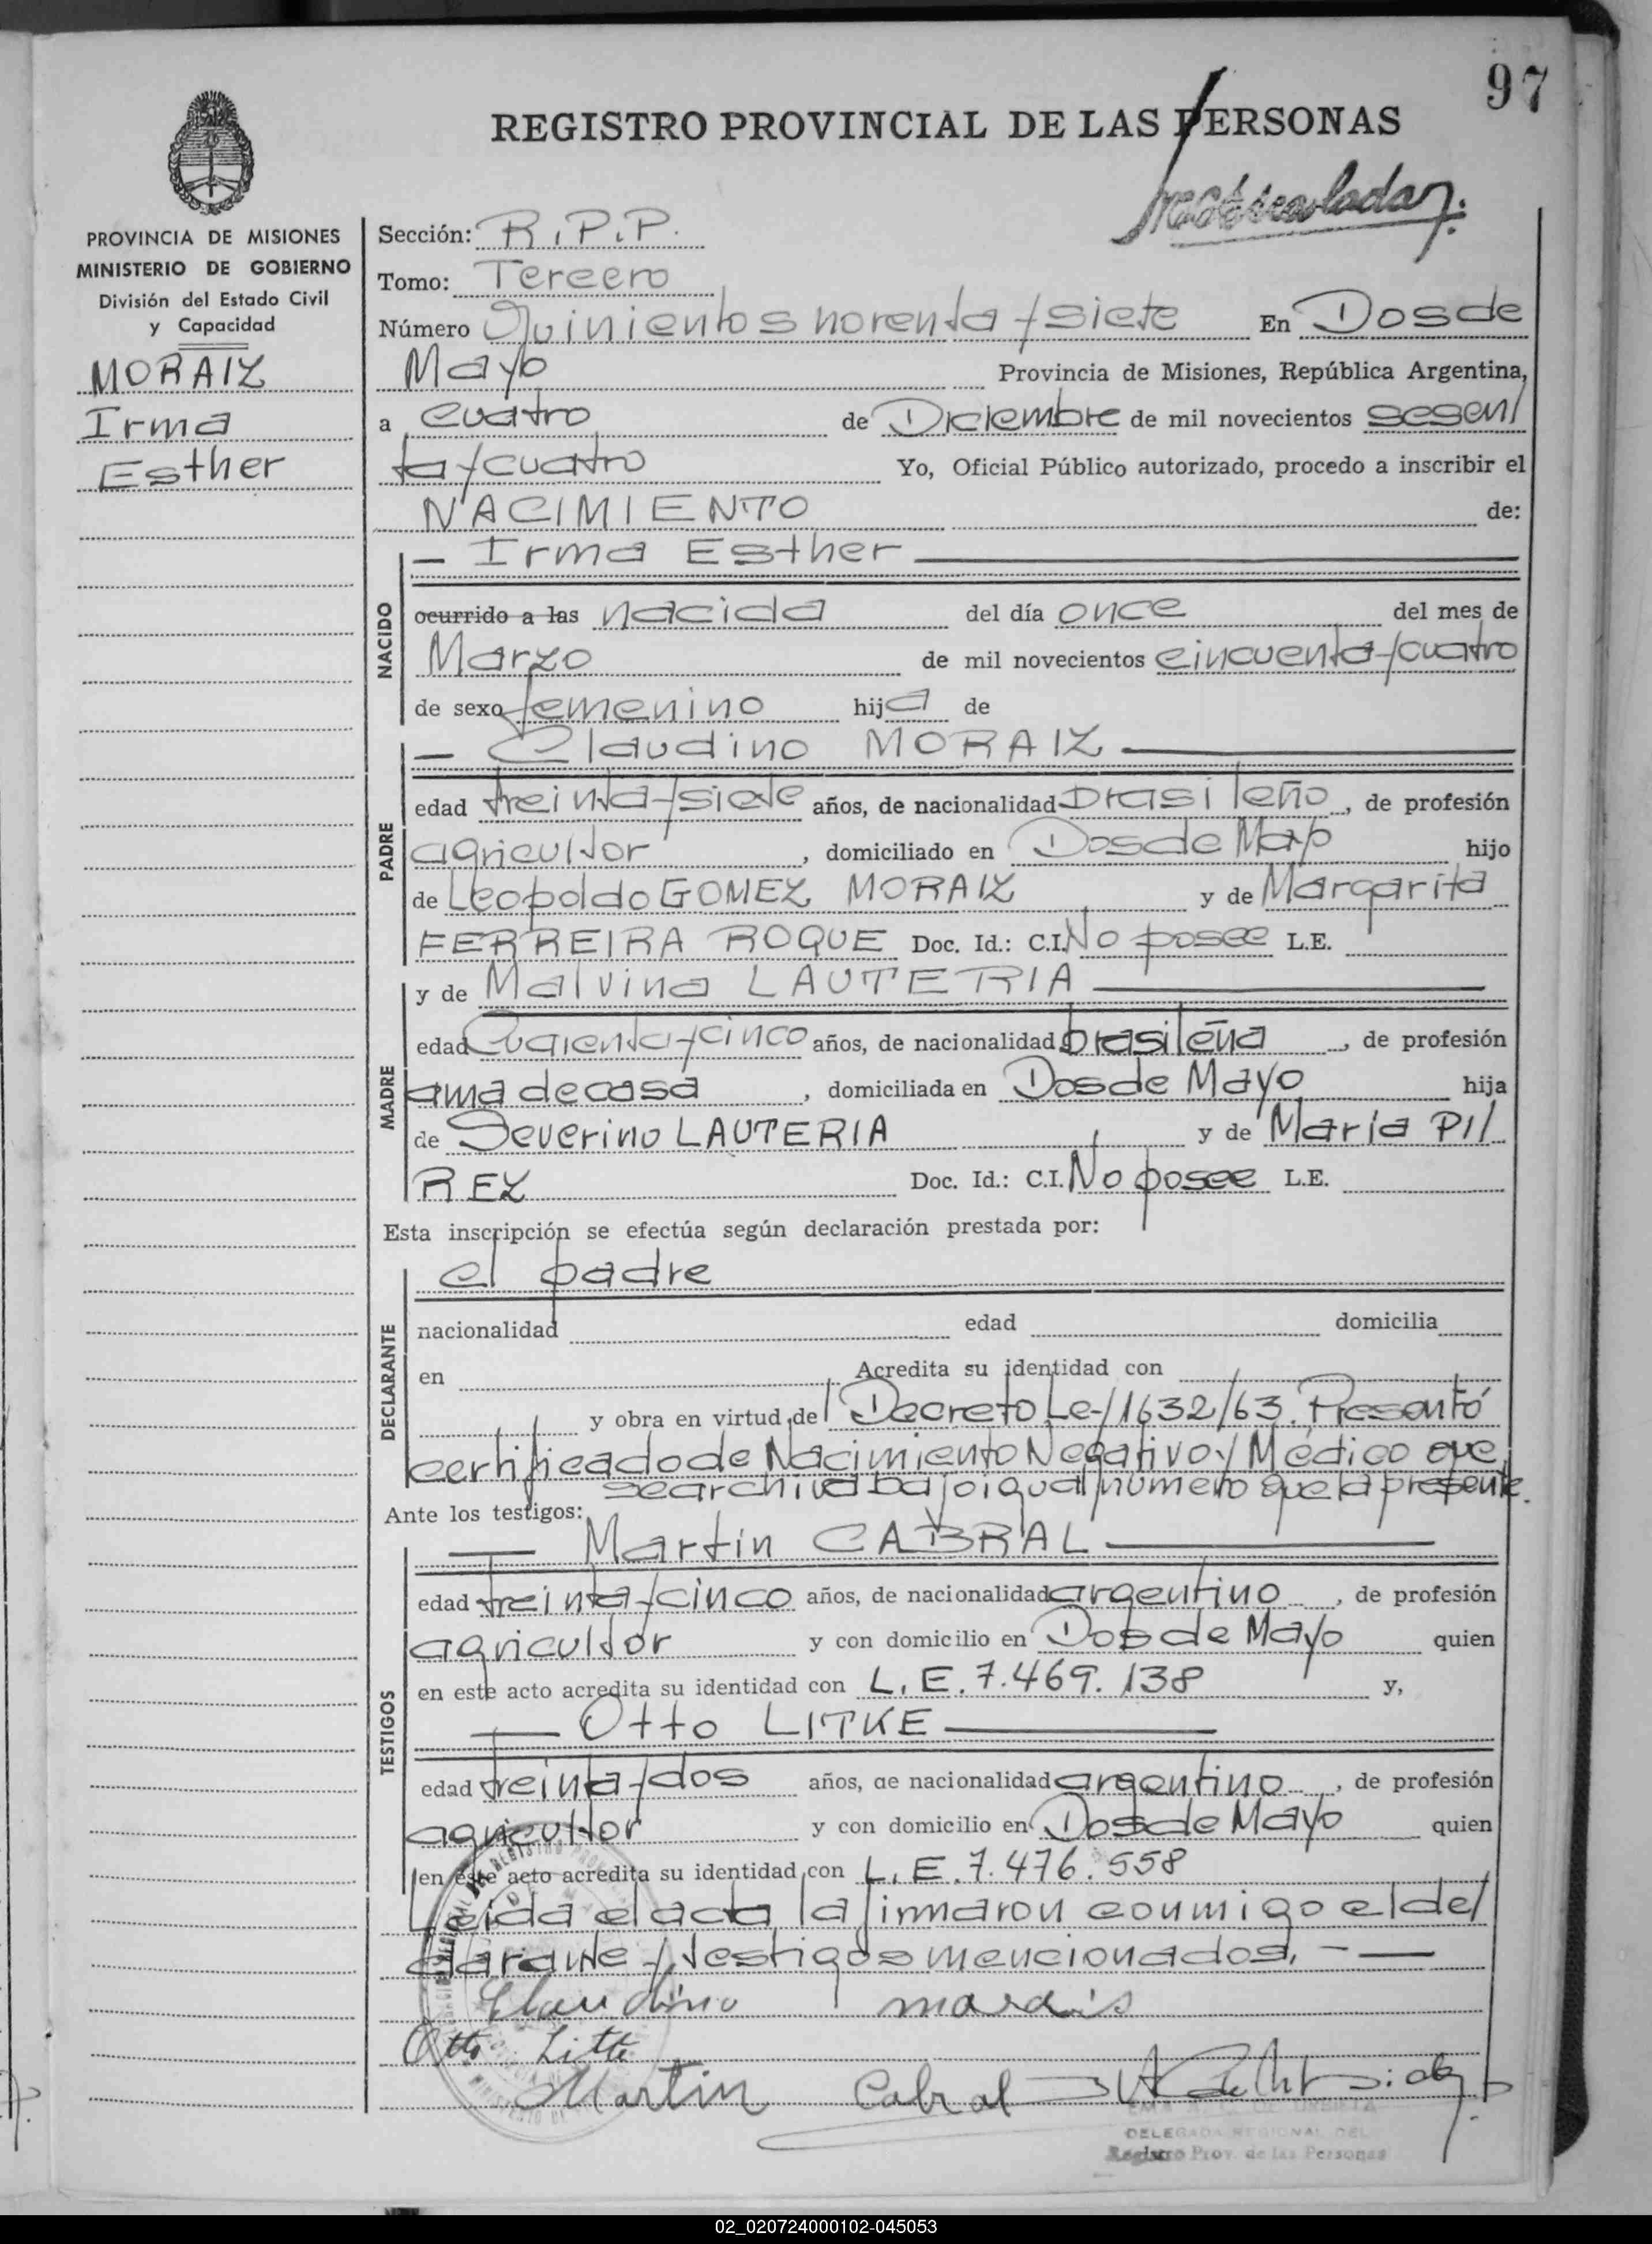 97
REGISTRO PROVINCIAL DE LAS PERSONAS
PROVINCIA DE MISIONES
MINISTERIO DE GOBIERNO
División del Estado Civil
y Capacidad
MORAIZ
Irma
Esther
Sección: R.P.P.
Tomo: Tercero
Número Quinientos noventa y siete En Dos de
Mayo Provincia de Misiones, República Argentina,
a cuatro de Diciembre de mil novecientos sesen/
ta y cuatro Yo, Oficial Público autorizado, procedo a inscribir el
NACIMIENTO de:
— Irma Esther —
NACIDO
ocurrido a las nacida del día once del mes de
Marzo de mil novecientos cincuenta y cuatro
de sexo femenino hija de
— Claudino MORAIZ —
PADRE
edad treinta y siete años, de nacionalidad brasileño, de profesión
agricultor, domiciliado en Dos de Mayo hijo
de Leopoldo GOMEZ MORAIZ y de Margarita
FERREIRA ROQUE Doc. Id.: C.I. No posee L.E.
y de Malvina LAUTERIA —
MADRE
edad Cuarenta y cinco años, de nacionalidad brasileña, de profesión
ama de casa, domiciliada en Dos de Mayo hija
de Severino LAUTERIA y de María PI/
REZ Doc. Id.: C.I. No posee L.E.
Esta inscripción se efectúa según declaración prestada por:
el padre
DECLARANTE
nacionalidad edad domicilia
en Acredita su identidad con
y obra en virtud del Decreto Ley 1632/63. Presentó
certificado de Nacimiento Negativo y Médico que
se archiva bajo igual número que la presente.
Ante los testigos:
— Martin CABRAL —
TESTIGOS
edad treinta y cinco años, de nacionalidad argentino, de profesión
agricultor y con domicilio en Dos de Mayo quien
en este acto acredita su identidad con L.E. 7.469.138 y,
— Otto LITKE —
edad treinta y dos años, de nacionalidad argentino, de profesión
agricultor y con domicilio en Dos de Mayo quien
en este acto acredita su identidad con L.E. 7.476.558
Leída el acta la firmaron conmigo el de/
clarante y testigos mencionados. —
Claudino morais
Otto Litke
Martin Cabral
DELEGADA REGIONAL DEL
Registro Prov. de las Personas
02_020724000102-045053